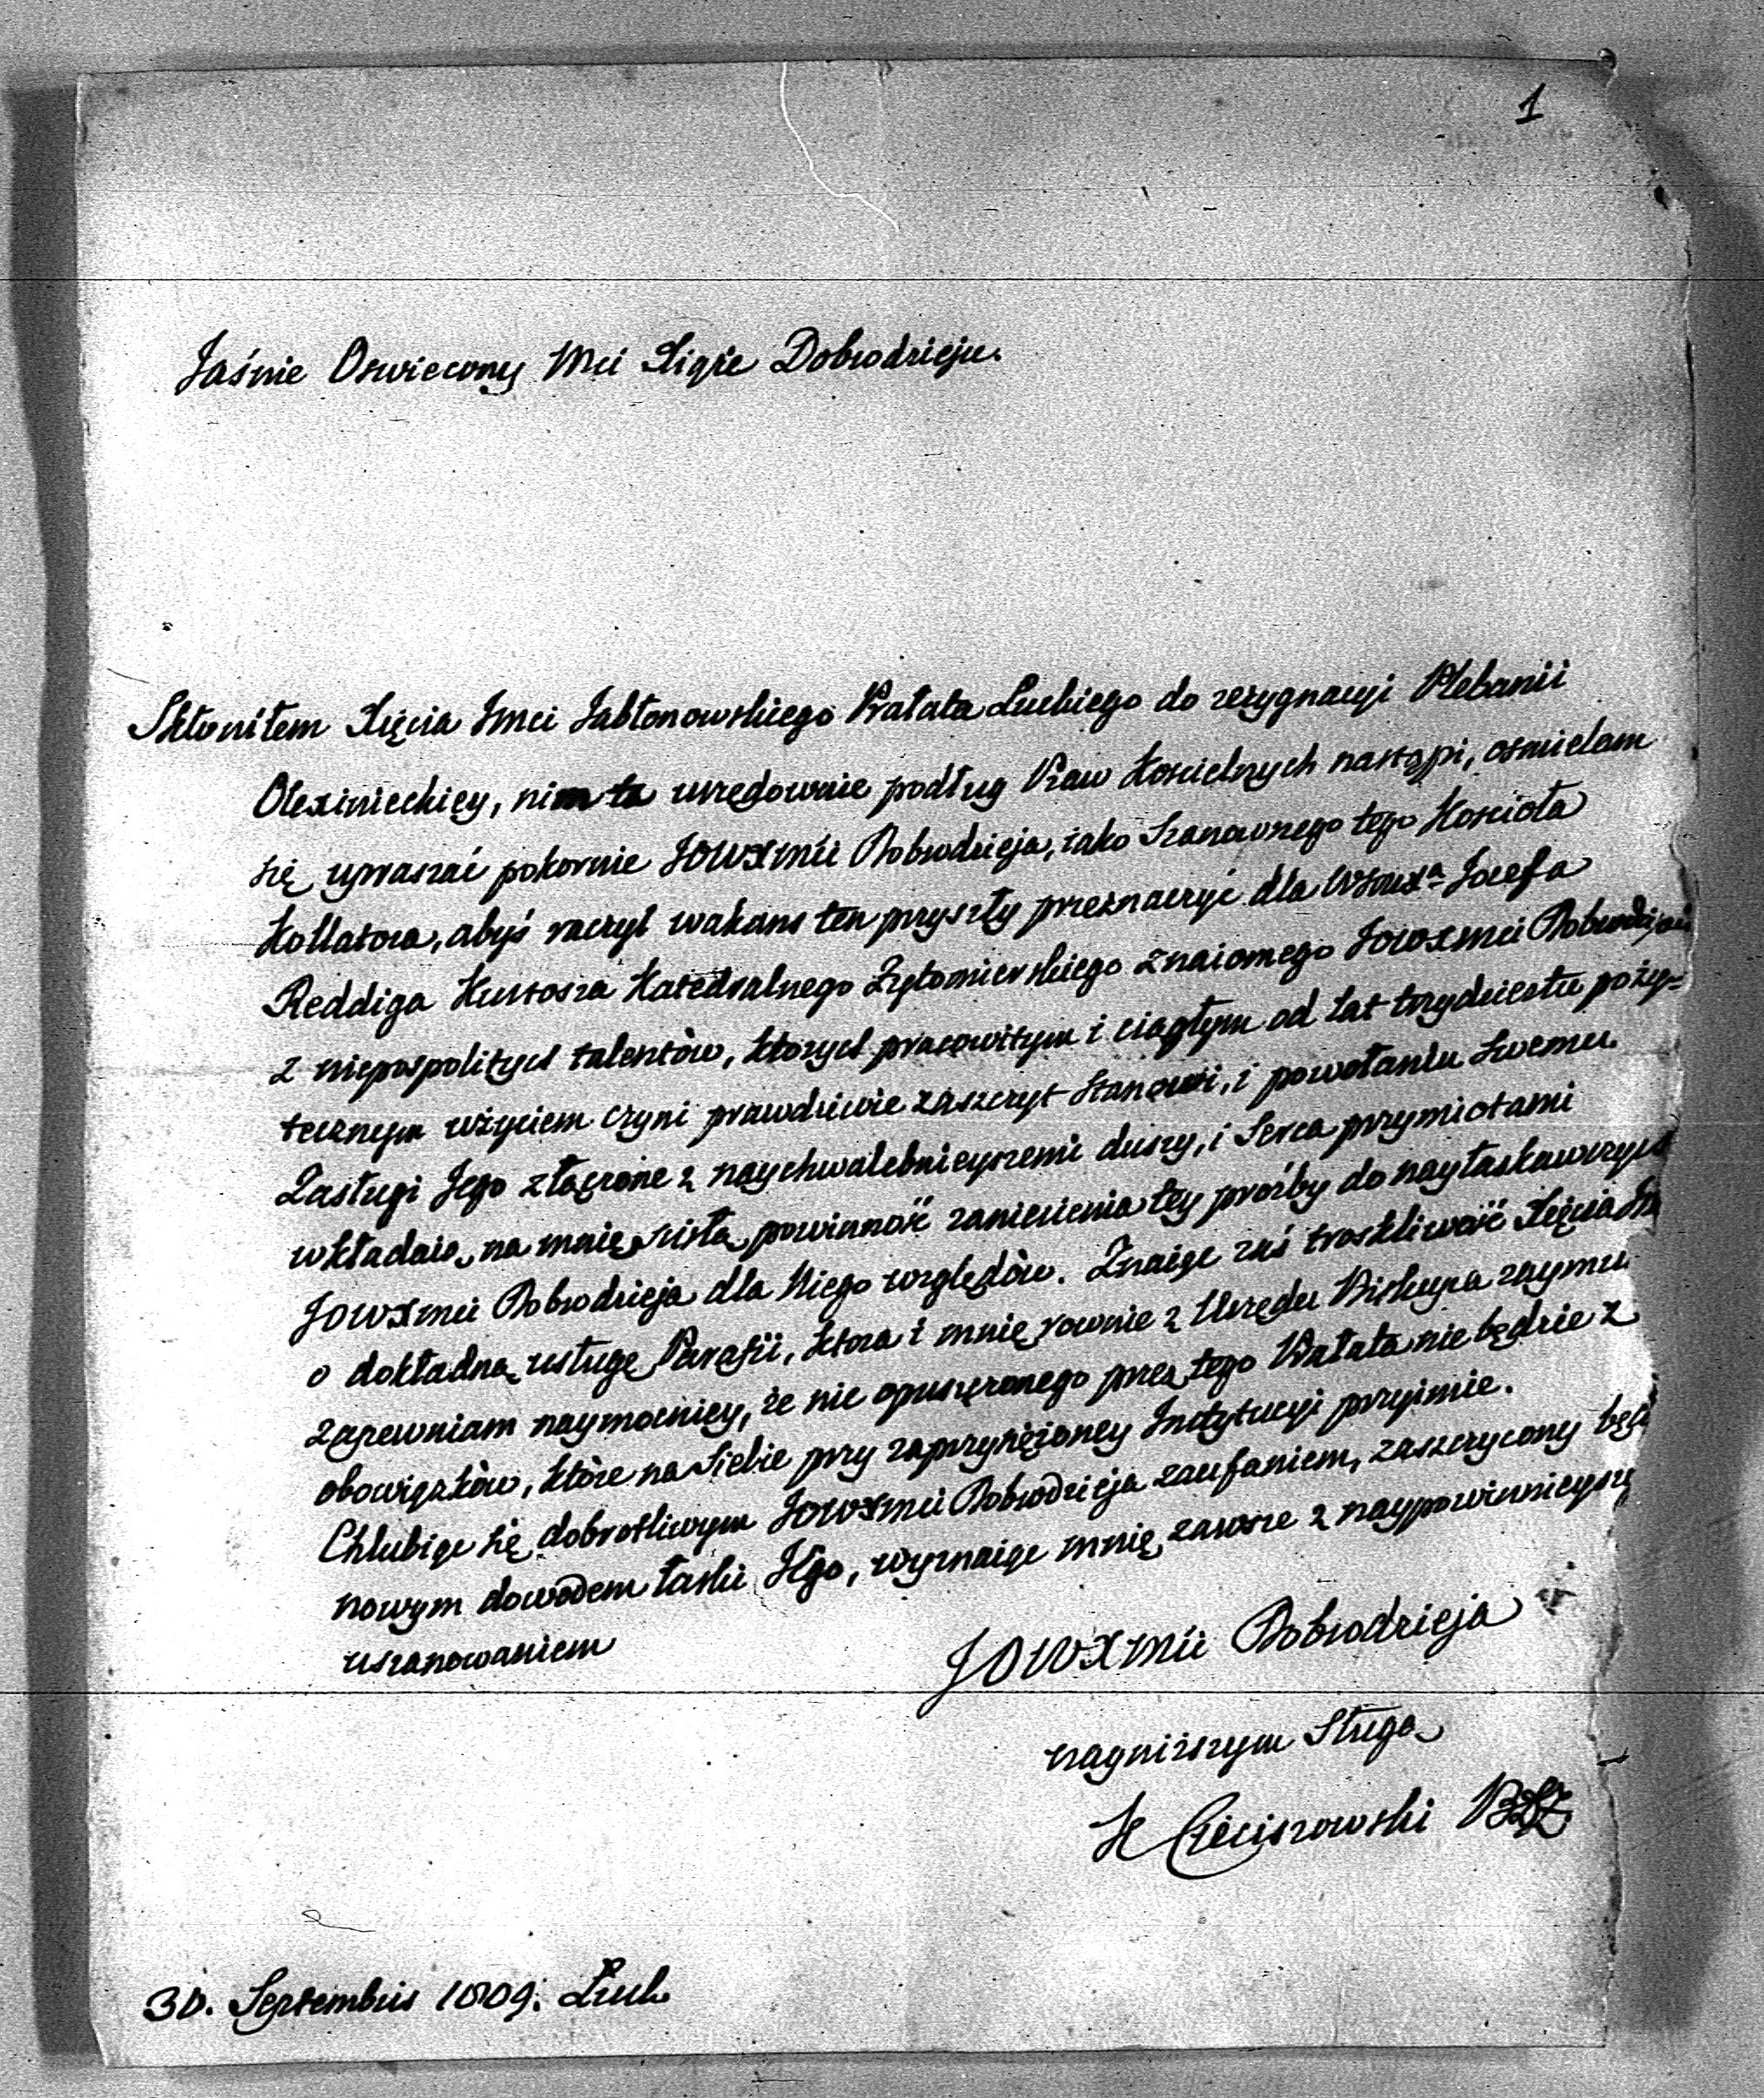 1
Jaśnie Oswiecony Mci Xiąże Dobrodzieju.
Skłoniłem Xięcia Jmci Jabłonowskiego Prałata Łuckiego do rezygnacyi Plebanii
Olexinieckiey, nim ta urzędownie podług Praw Koscielnych nastąpi, osmielam
się upraszać pokornie JOWXMci Dobrodzieja, iako Szanownego tego Koscioła
Kollatora, abyś raczył wakans ten przyszły przeznaczyć dla WJmXa Jozefa
Reddiga Kustosza Katedralnego Żytomierskiego znaiomego JOWXMci Dobrodziejowi
z niepospolitych talentòw, ktorych pracowitym i ciągłym od lat trzydziestu poży-
tecznym użyciem czyni prawdziwie zaszczyt Stanowi, i powołaniu Swemu.
Zasługi Jego złączone z naychwalebnieyszemi duszy, i Serca przymiotami
wkładaią na mnię scisłą powinność zaniesienia tey prośby do nayłaskawszych
JOWXMci Dobrodzieja dla Niego względòw. Znaiąc zaś troskliwość Xięcia
o dokładną usługę Parafii, ktora i mnię rownie z Urzędu Biskupa zaymu
zapewniam naymocniey, że nic opuszczonego przez tego Prałata nie będzie z
obowiązkòw, ktòre na Siebie przy zaprzysiężoney Instytucyi przyimie.
Chlubiąc się dobrotliwym JOWXMci Dobrodzieja zaufaniem, zaszczycony będąc
nowym dowodem łaski Jego, wyznaię mnię zawsze z naypowinnieyszym
uszanowaniem
JOWXMci Dobrodzieja
nayniższym Sługą
K Cieciszowski BŁŻ
30. Septembris 1809. Łuck